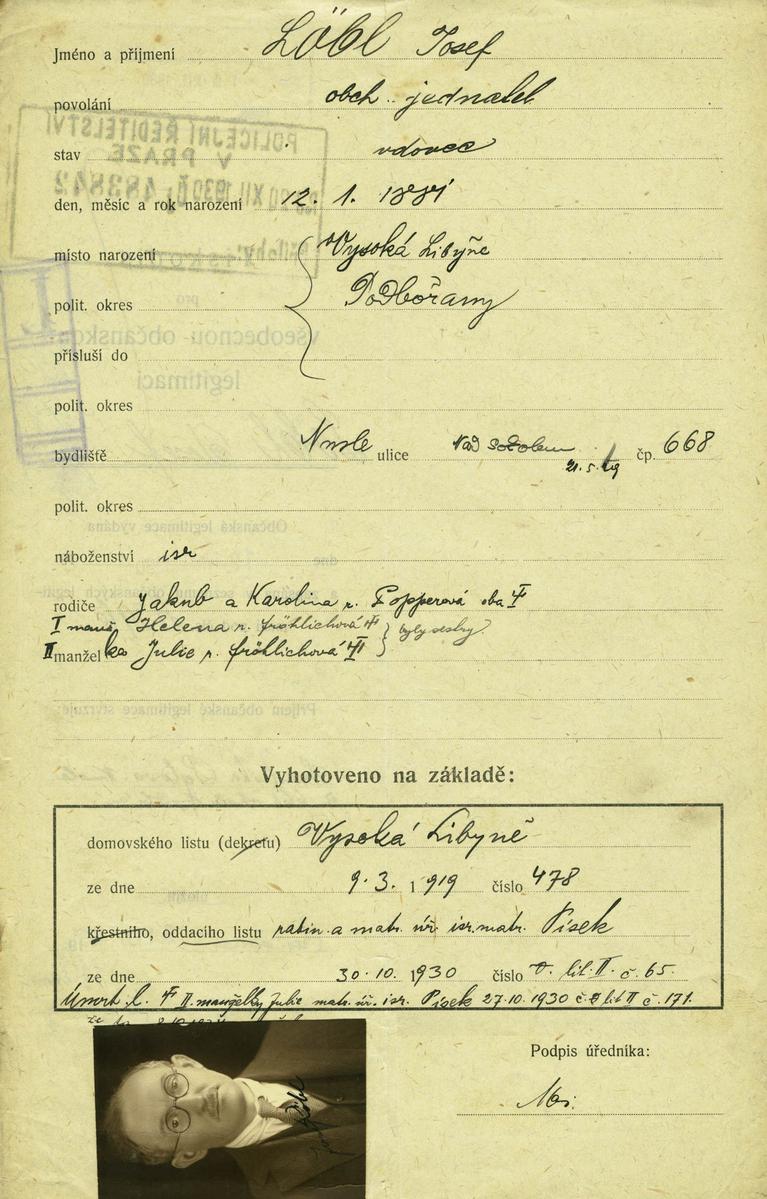 Jméno a příjmení Löbl Josef
povolání obch. jednatel
stav vdovec
den, měsíc a rok narození 12. 1. 1881
místo narození Vysoká Libyně
polit. okres Podbořany
přísluší do
polit. okres
bydliště Nusle ulice Nad Sokolem čp. 668
21. 5.
polit. okres
náboženství isr
rodiče Jakub a Karolina r. Popperová oba
I manž. Helena r. Fröhlichová byly sestry
II manželka Julie r. Fröhlichová
Vyhotoveno na základě:
domovského listu (dekretu) Vysoká Libyně
ze dne 9. 3. 1919 číslo 478
křestního, oddacího listu rabin. a matr. úř. isr. matr. Písek
ze dne 30. 10. 1930 číslo lit. II. č. 65.
Úmrt. l. II. manželky Julie matr. úř. isr. Písek 27. 10. 1930 lit II č. 171.
Podpis úředníka:
POLICEJNÍ ŘEDITELSTVÍ
V PRAZE
XII. 1930 483842
pro
všeobecnou občanskou
legitimaci
Občanská legitimace vydána
dne
Příjem občanské legitimace stvrzuje: